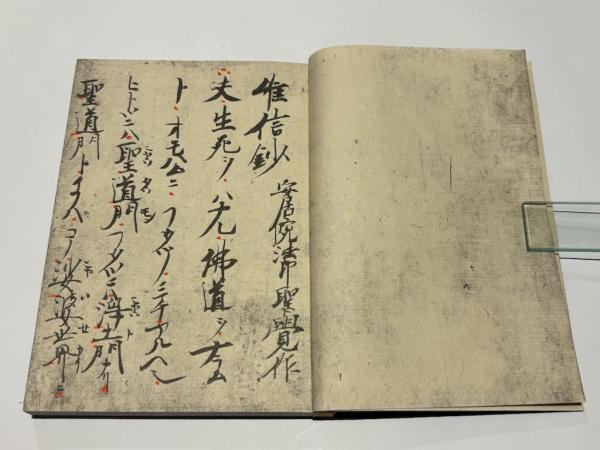 唯信鈔　安居院法印聖覺作
夫生死ヲハナレ佛道ヲナラム
ト、オモハムニフタツノミチアルヘシ
ヒトツニハ聖道門フタツニハ淨土門ナリ
聖道門トイフハコノ娑婆世界ニ